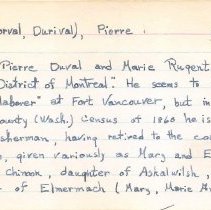 orval, Durival), Pierre.
Pierre Duval and Marie Rugent
District of Montreal". He seems to
laborer" at Fort Vancouver, but in
ounty (Wash.) Census of 1860 he is
sherman, having retired to the co
, given variously as Mary and E
Chinook, daughter of Askalwilsh,
r of Elmermach (Mary, Marie M